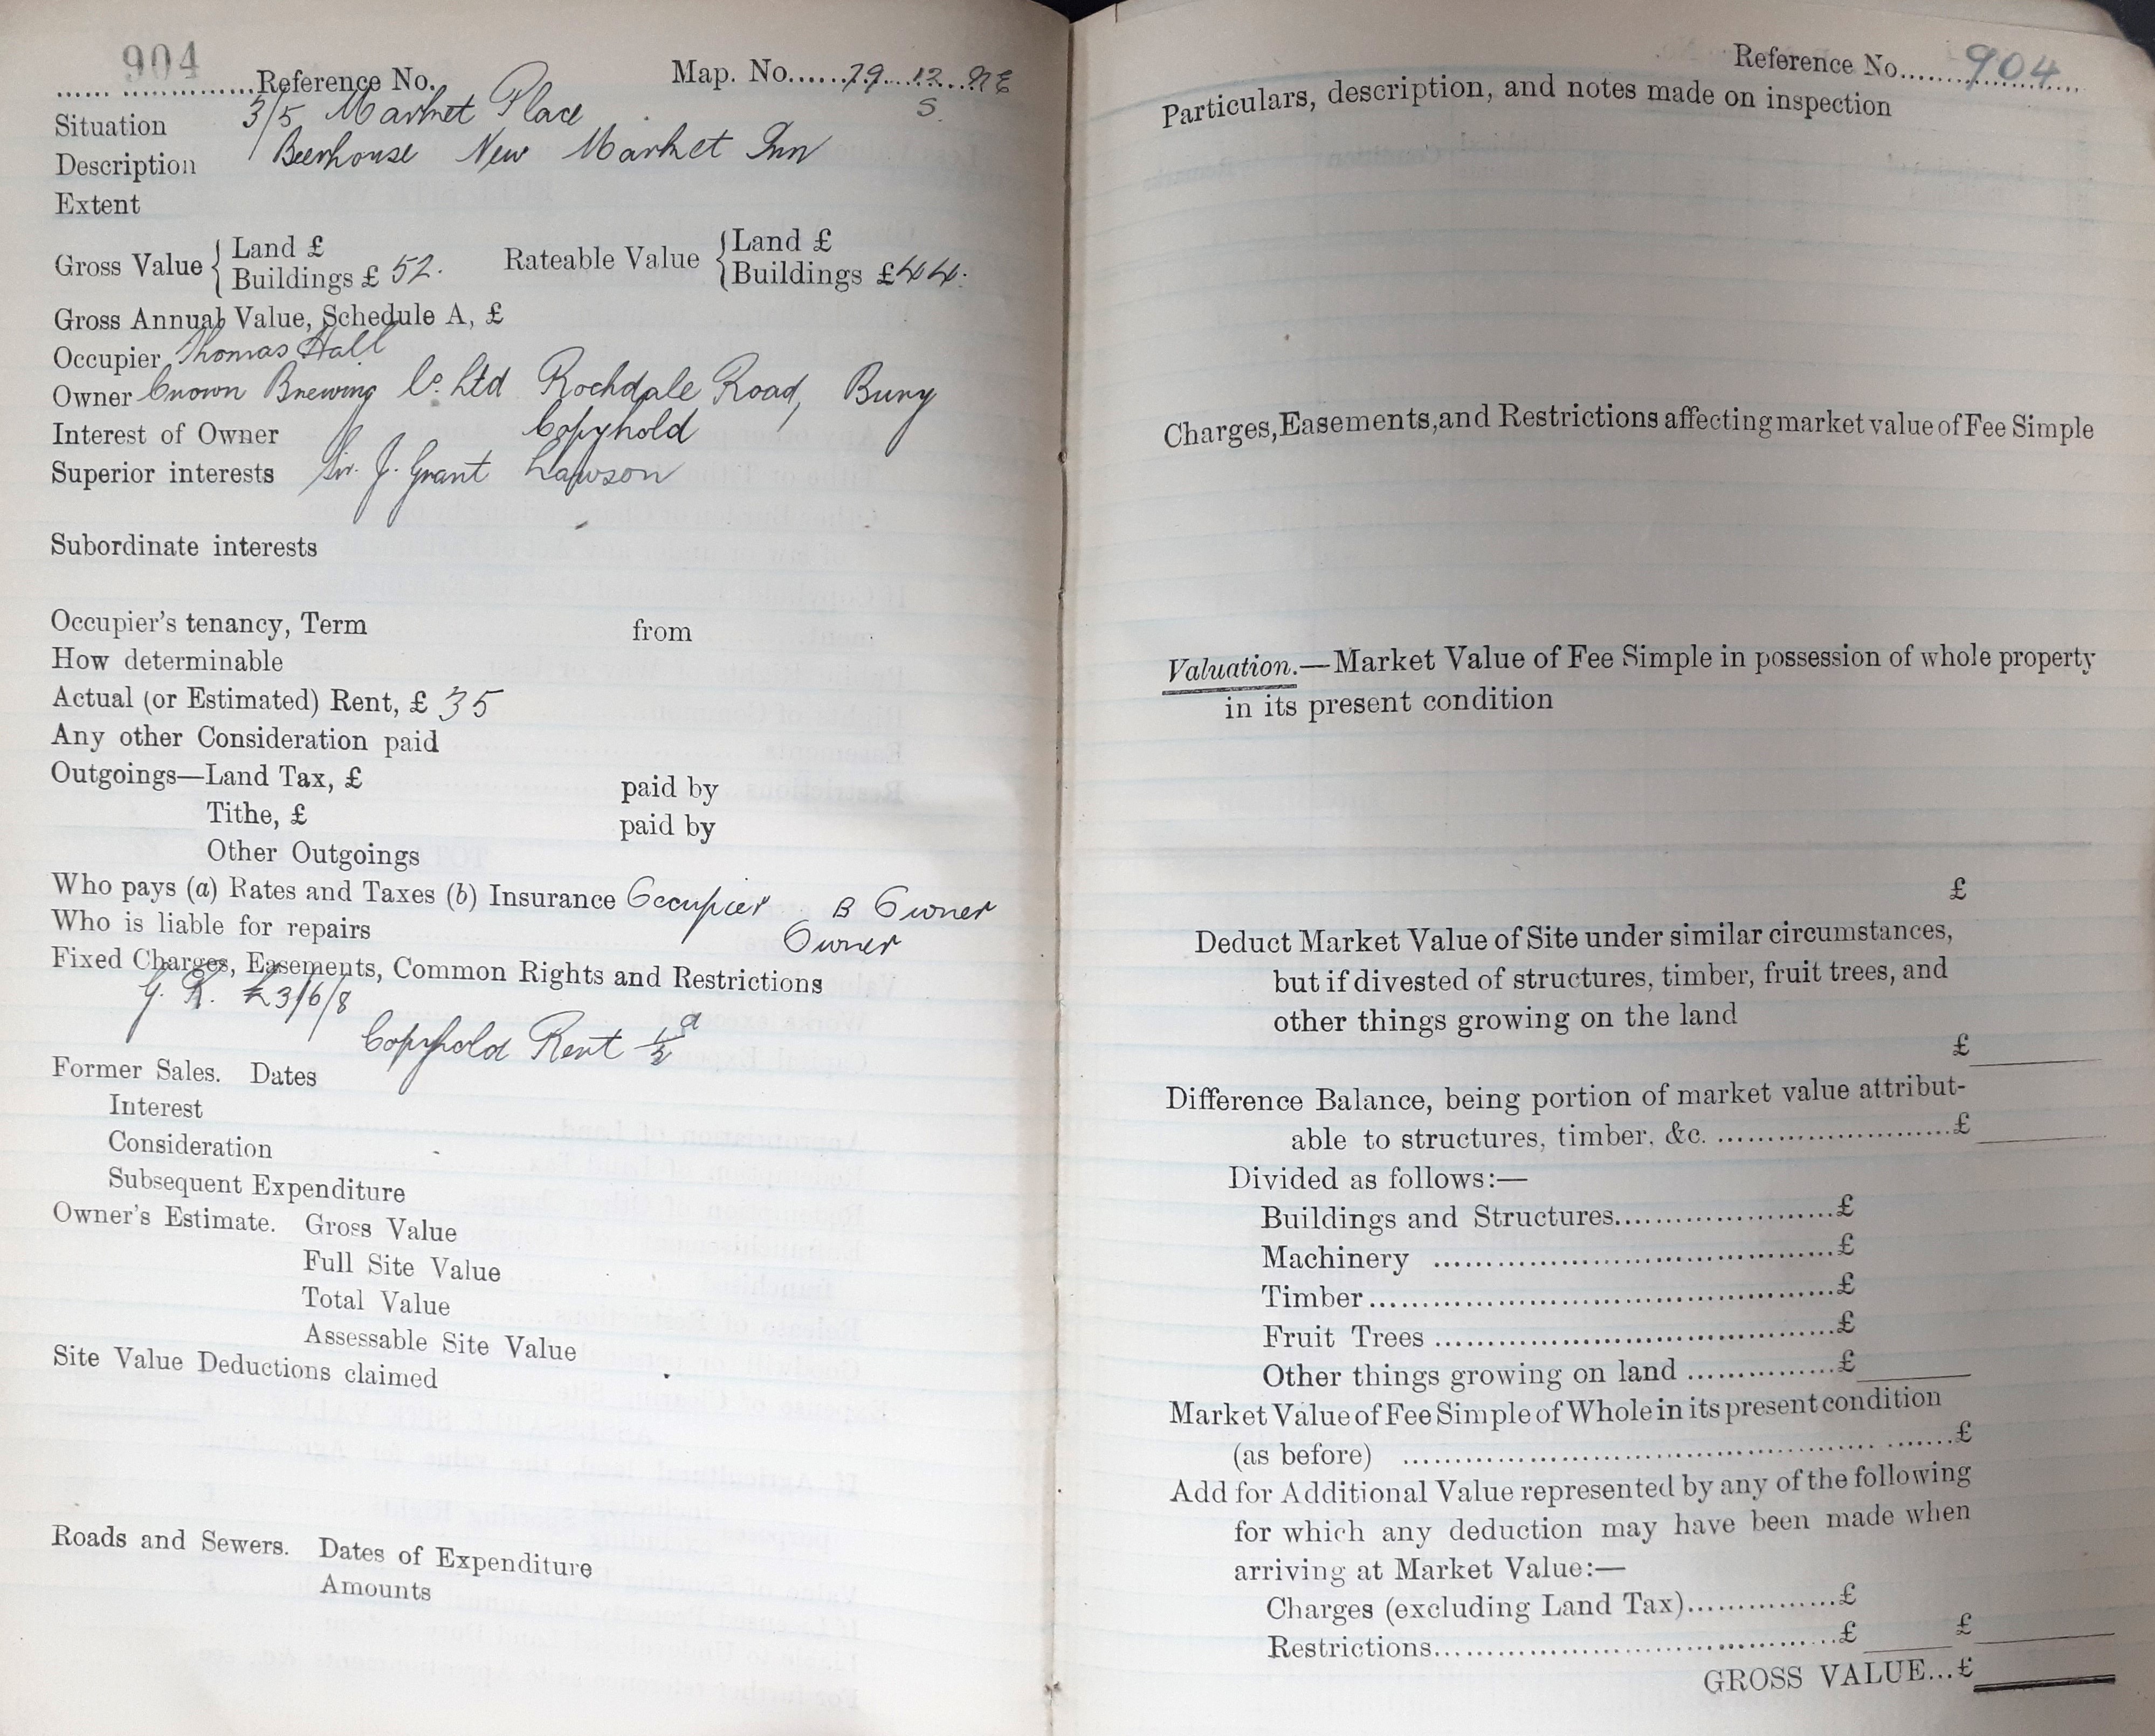 904
Reference No. Map. No. 79 12 NE
S.
Situation 3/5 Market Place
Description Beerhouse New Market Inn
Extent
Gross Value { Land £
Buildings £ 52. Rateable Value { Land £
Buildings £ 44.
Gross Annual Value, Schedule A, £
Occupier Thomas Hall
Owner Crown Brewing Co. Ltd Rochdale Road, Bury
Interest of Owner Copyhold
Superior interests Sir. J. Grant Lawson
Subordinate interests
Occupier's tenancy, Term from
How determinable
Actual (or Estimated) Rent, £ 35
Any other Consideration paid
Outgoings—Land Tax, £ paid by
Tithe, £ paid by
Other Outgoings
Who pays (a) Rates and Taxes (b) Insurance Occupier B Owner
Who is liable for repairs Owner
Fixed Charges, Easements, Common Rights and Restrictions
G. R. £3/6/8
Copyhold Rent ½d
Former Sales. Dates
Interest
Consideration
Subsequent Expenditure
Owner's Estimate. Gross Value
Full Site Value
Total Value
Assessable Site Value
Site Value Deductions claimed
Roads and Sewers. Dates of Expenditure
Amounts
Reference No. 904
Particulars, description, and notes made on inspection
Charges, Easements, and Restrictions affecting market value of Fee Simple
Valuation.—Market Value of Fee Simple in possession of whole property
in its present condition
£
Deduct Market Value of Site under similar circumstances,
but if divested of structures, timber, fruit trees, and
other things growing on the land
£
Difference Balance, being portion of market value attribut-
able to structures, timber, &c. £
Divided as follows:—
Buildings and Structures £
Machinery £
Timber £
Fruit Trees £
Other things growing on land £
Market Value of Fee Simple of Whole in its present condition
(as before) £
Add for Additional Value represented by any of the following
for which any deduction may have been made when
arriving at Market Value:—
Charges (excluding Land Tax) £
Restrictions £ £
GROSS VALUE...£